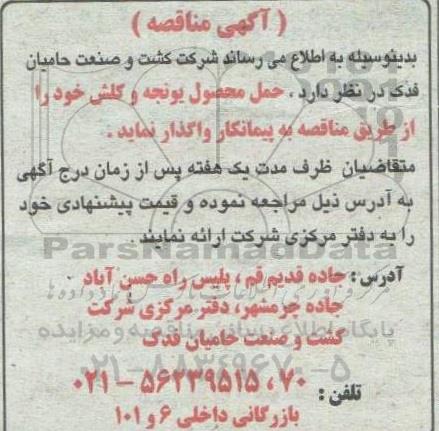 ( آگهی مناقصه )
بدینوسیله به اطلاع می رساند شرکت کشت و صنعت حامیان
فدک در نظر دارد ، حمل محصول یونجه و کلش خود را
از طریق مناقصه به پیمانکار واگذار نماید .
متقاضیان ظرف مدت یک هفته پس از زمان درج آگهی
به آدرس ذیل مراجعه نموده و قیمت پیشنهادی خود
را به دفتر مرکزی شرکت ارائه نمایند .
ParsNamadData
آدرس : جاده قدیم قم ، پلیس راه حسن آباد
جاده چرمشهر، دفتر مرکزی شرکت
کشت و صنعت حامیان فدک
پایگاه اطلاع رسانی مناقصه و مزایده
۰۲۱-۸۸۳۴۹۶۷۰-۵
تلفن : ۷۰ ، ۵۶۲۳۹۵۱۵ - ۰۲۱
بازرگانی داخلی ۶ و ۱۰۱